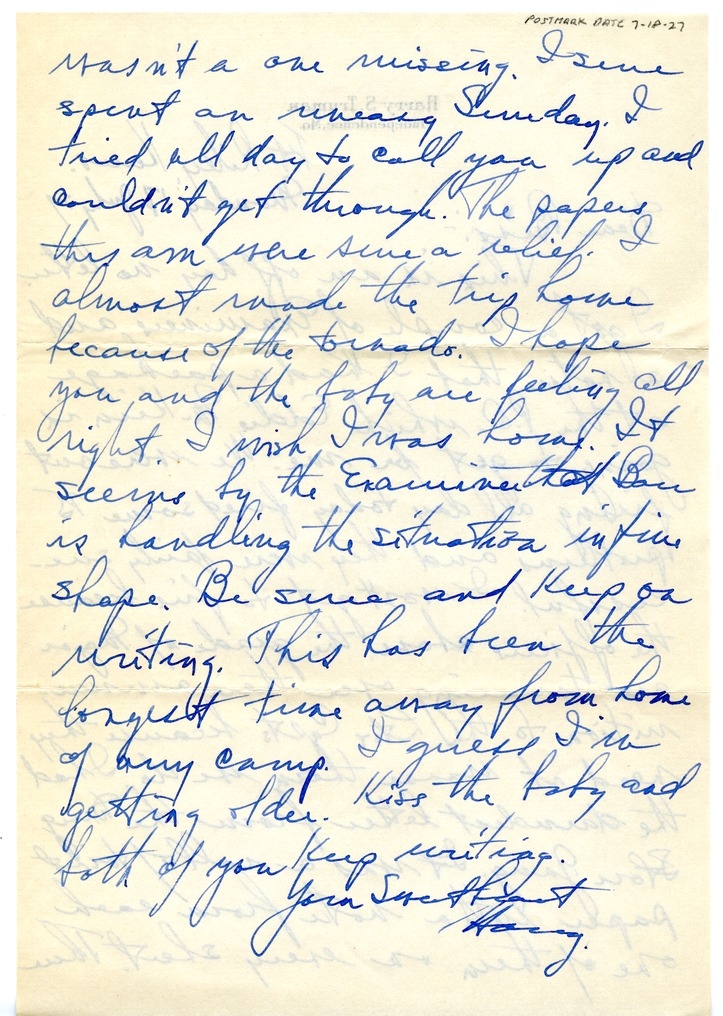 POSTMARK DATE 7-18-27
wasn't a one missing. I sure
spent an uneasy Sunday. I
tried all day to call you up and
couldn't get through. The papers
this am were sure a relief. I
almost made the trip home
because of the tornado. I hope
you and the baby are feeling all
right. I wish I was home. It
seems by the Examiner that Barr
is handling the situation in fine
shape. Be sure and keep on
writing. This has been the
longest time away from home
of any camp. I guess I'm
getting older. Kiss the baby and
both of you keep writing.
Your Sweetheart
Harry.